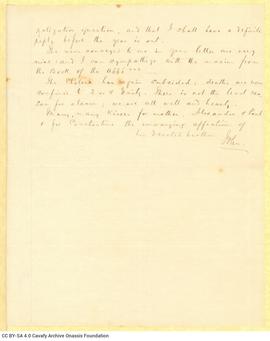 navigation question, and that I shall have a definite
reply before the year is out.
The news conveyed to me in your letter are very
nice; and I can sympathise with the maxim from
the Book of the
The Cholera has again subsided; deaths are now
confined to 3 or 4 daily. There is not the least rea
son for alarm; we are all well and hearty.
Many, many kisses for mother, Alexander & Paul
& for Constantine the unchanging affection of
his devoted brother
John
CC BY-SA 4.0 Cavafy Archive Onassis Foundation